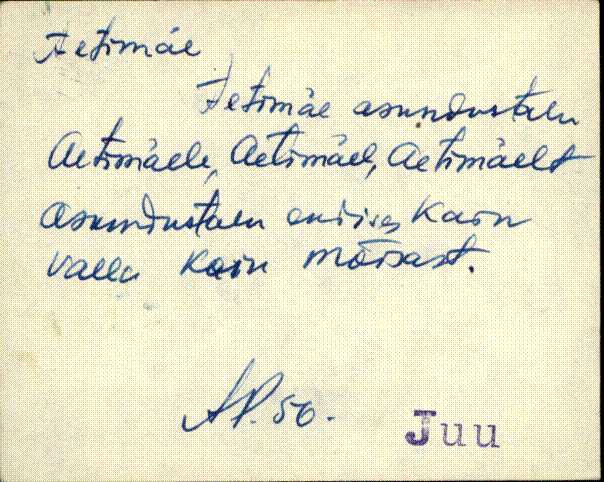 Aetimäe
Aetimäe asundustalu
Aetimäele, Aetimäel, Aetimäelt
Asundustalu endises Kaiu
valla Kaiu mõisast.
AP. 56.
Juu